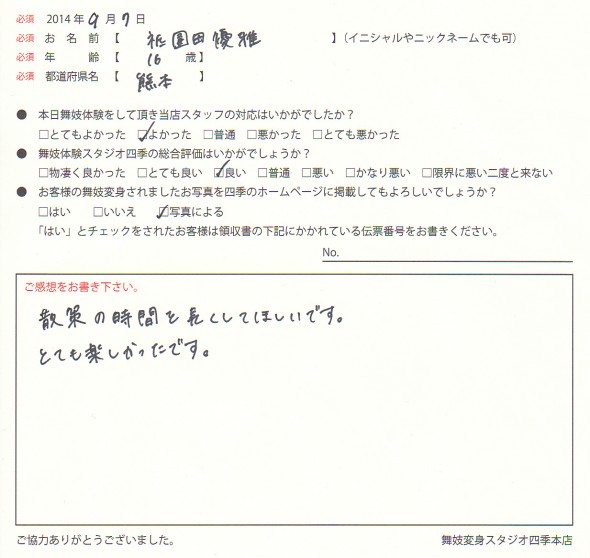 必須 2014年9月7日
必須 お名前【 祇園田優雅 】(イニシャルやニックネームでも可)
必須 年齢【 16 歳】
必須 都道府県名【 熊本 】
● 本日舞妓体験をして頂き当店スタッフの対応はいかがでしたか？
□とてもよかった ☑よかった □普通 □悪かった □とても悪かった
● 舞妓体験スタジオ四季の総合評価はいかがでしょうか？
□物凄く良かった □とても良い ☑良い □普通 □悪い □かなり悪い □限界に悪い二度と来ない
● お客様の舞妓変身されましたお写真を四季のホームページに掲載してもよろしいでしょうか？
□はい □いいえ ☑写真による
「はい」とチェックをされたお客様は領収書の下記にかかれている伝票番号をお書きください。
No.
ご感想をお書き下さい。
散策の時間を長くしてほしいです。
とても楽しかったです。
ご協力ありがとうございました。 舞妓変身スタジオ四季本店